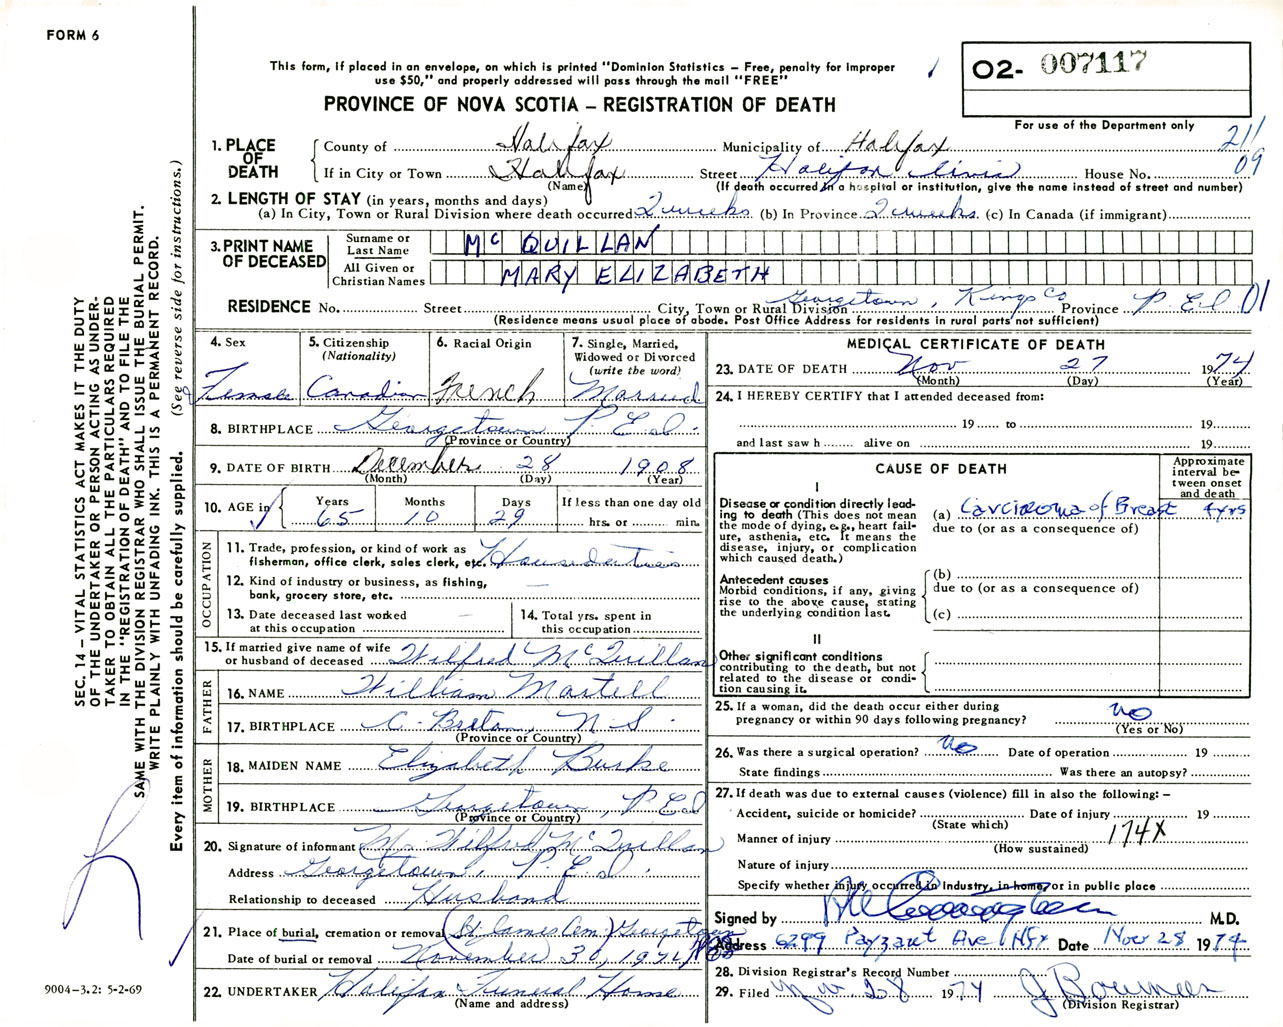 FORM 6
This form, if placed in an envelope, on which is printed "Dominion Statistics – Free, penalty for improper
use $50," and properly addressed will pass through the mail "FREE"
PROVINCE OF NOVA SCOTIA – REGISTRATION OF DEATH
02- 007117
For use of the Department only
211
09
1. PLACE OF DEATH
County of Halifax Municipality of Halifax
If in City or Town Halifax Street Halifax Civic House No.
(Name) (If death occurred in a hospital or institution, give the name instead of street and number)
2. LENGTH OF STAY (in years, months and days)
(a) In City, Town or Rural Division where death occurred 2 weeks (b) In Province 2 weeks (c) In Canada (if immigrant)
3. PRINT NAME OF DECEASED
Surname or Last Name Mc QUILLAN
All Given or Christian Names MARY ELIZABETH
RESIDENCE No. Street City, Town or Rural Division Georgetown, Kings Co Province P.E.I 01
(Residence means usual place of abode. Post Office Address for residents in rural parts not sufficient)
4. Sex Female
5. Citizenship (Nationality) Canadian
6. Racial Origin French
7. Single, Married, Widowed or Divorced (write the word) Married
8. BIRTHPLACE Georgetown P.E.I.
(Province or Country)
9. DATE OF BIRTH December 28 1908
(Month) (Day) (Year)
10. AGE in Years 65 Months 10 Days 29 If less than one day old hrs. or min.
OCCUPATION
11. Trade, profession, or kind of work as fisherman, office clerk, sales clerk, etc. House duties
12. Kind of industry or business, as fishing, bank, grocery store, etc. —
13. Date deceased last worked at this occupation —
14. Total yrs. spent in this occupation
15. If married give name of wife or husband of deceased Wilfred McQuillan
FATHER
16. NAME William Martell
17. BIRTHPLACE C. Breton, N.S.
(Province or Country)
MOTHER
18. MAIDEN NAME Elizabeth Burke
19. BIRTHPLACE Georgetown, P.E.I
(Province or Country)
20. Signature of informant Mr. Wilfred McQuillan
Address Georgetown, P.E.I.
Relationship to deceased Husband
21. Place of burial, cremation or removal (St. James Cem.) Georgetown
Date of burial or removal November 30, 1974
22. UNDERTAKER Halifax Funeral Home
(Name and address)
MEDICAL CERTIFICATE OF DEATH
23. DATE OF DEATH Nov 27 1974
(Month) (Day) (Year)
24. I HEREBY CERTIFY that I attended deceased from:
19 to 19
and last saw h alive on 19
CAUSE OF DEATH
Approximate interval between onset and death
I
Disease or condition directly leading to death (This does not mean the mode of dying, e.g., heart failure, asthenia, etc. It means the disease, injury, or complication which caused death.)
(a) Carcinoma of Breast 4 yrs
due to (or as a consequence of)
Antecedent causes
Morbid conditions, if any, giving rise to the above cause, stating the underlying condition last.
(b)
due to (or as a consequence of)
(c)
II
Other significant conditions
contributing to the death, but not related to the disease or condition causing it.
25. If a woman, did the death occur either during pregnancy or within 90 days following pregnancy? no
(Yes or No)
26. Was there a surgical operation? no Date of operation 19
State findings Was there an autopsy?
27. If death was due to external causes (violence) fill in also the following: –
Accident, suicide or homicide? Date of injury 19
(State which)
Manner of injury 174X
(How sustained)
Nature of injury
Specify whether injury occurred in Industry, in home, or in public place
Signed by M.D.
Address 6299 Payzant Ave Hfx Date Nov 28 1974
28. Division Registrar's Record Number
29. Filed Nov. 28 1974
(Division Registrar)
SEC. 14 – VITAL STATISTICS ACT MAKES IT THE DUTY
OF THE UNDERTAKER OR PERSON ACTING AS UNDER-
TAKER TO OBTAIN ALL THE PARTICULARS REQUIRED
IN THE "REGISTRATION OF DEATH" AND TO FILE THE
SAME WITH THE DIVISION REGISTRAR WHO SHALL ISSUE THE BURIAL PERMIT.
WRITE PLAINLY WITH UNFADING INK. THIS IS A PERMANENT RECORD.
Every item of information should be carefully supplied. (See reverse side for instructions.)
9004-3.2: 5-2-69